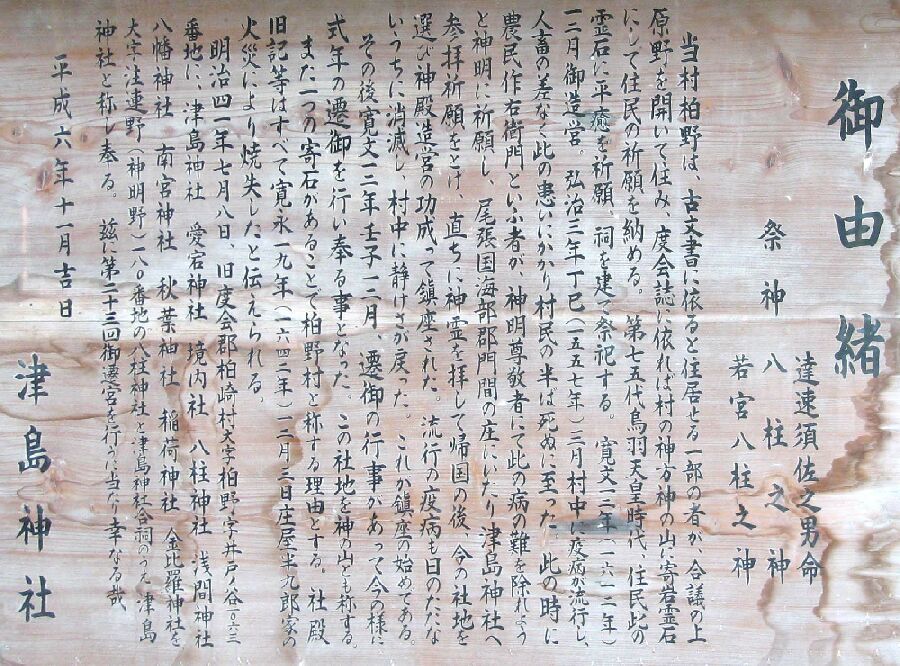 御由緒
祭神
達速須佐之男命
八柱之神
若宮八柱之神
当村柏野は、古文書に依ると住居せる一部の者が、合議の上
原野を開いて住み、度会誌に依れば村の神方神の山に寄岩霊石
にして住民の祈願を納める。 第七五代鳥羽天皇時代、住民此の
霊石に平癒を祈願、祠を建て祭祀する。 寛文一二年(一六一二年)
一二月御造営。弘治三年丁巳(一五五七年)三月村中に疫病が流行し、
人畜の差なく此の患いにかかり村民の半は死ぬに至った。此の時に
農民作右衛門といふ者が、神明尊敬者にて此の病の難を除れよう
と神明に祈願し、尾張国海部郡門間の庄にいたり津島神社へ
参拝祈願をとげ 直ちに神霊を拝して帰国の後、今の社地を
選び神殿造営の功成って鎮座された。流行の疫病も日のたたな
いうちに消滅し、村中に静けさが戻った。 これが鎮座の始めである。
その後寛文一二年壬子一二月、遷御の行事があって今の様に
式年の遷御を行い奉る事となった。 この社地を神の山とも称する。
また一つの寄石があることで柏野村と称する理由とする。社殿
旧記等はすべて寛永一九年(一六四二年)一二月三日庄屋半九郎家の
火災により焼失したと伝えられる。
明治四一年七月八日、旧度会郡柏崎村大字柏野字井戸ノ谷一〇六三
番地に、津島神社 愛宕神社 境内社 八柱神社 浅間神社
八幡神社 南宮神社 秋葉神社 稲荷神社 金比羅神社を
大字注連野(神明野)一八〇番地の八柱神社と津島神社合祠のうえ津島
神社と称し奉る。 茲に第二十三回御遷宮を行うに当たり幸なる哉
平成六年十一月吉日
津島神社